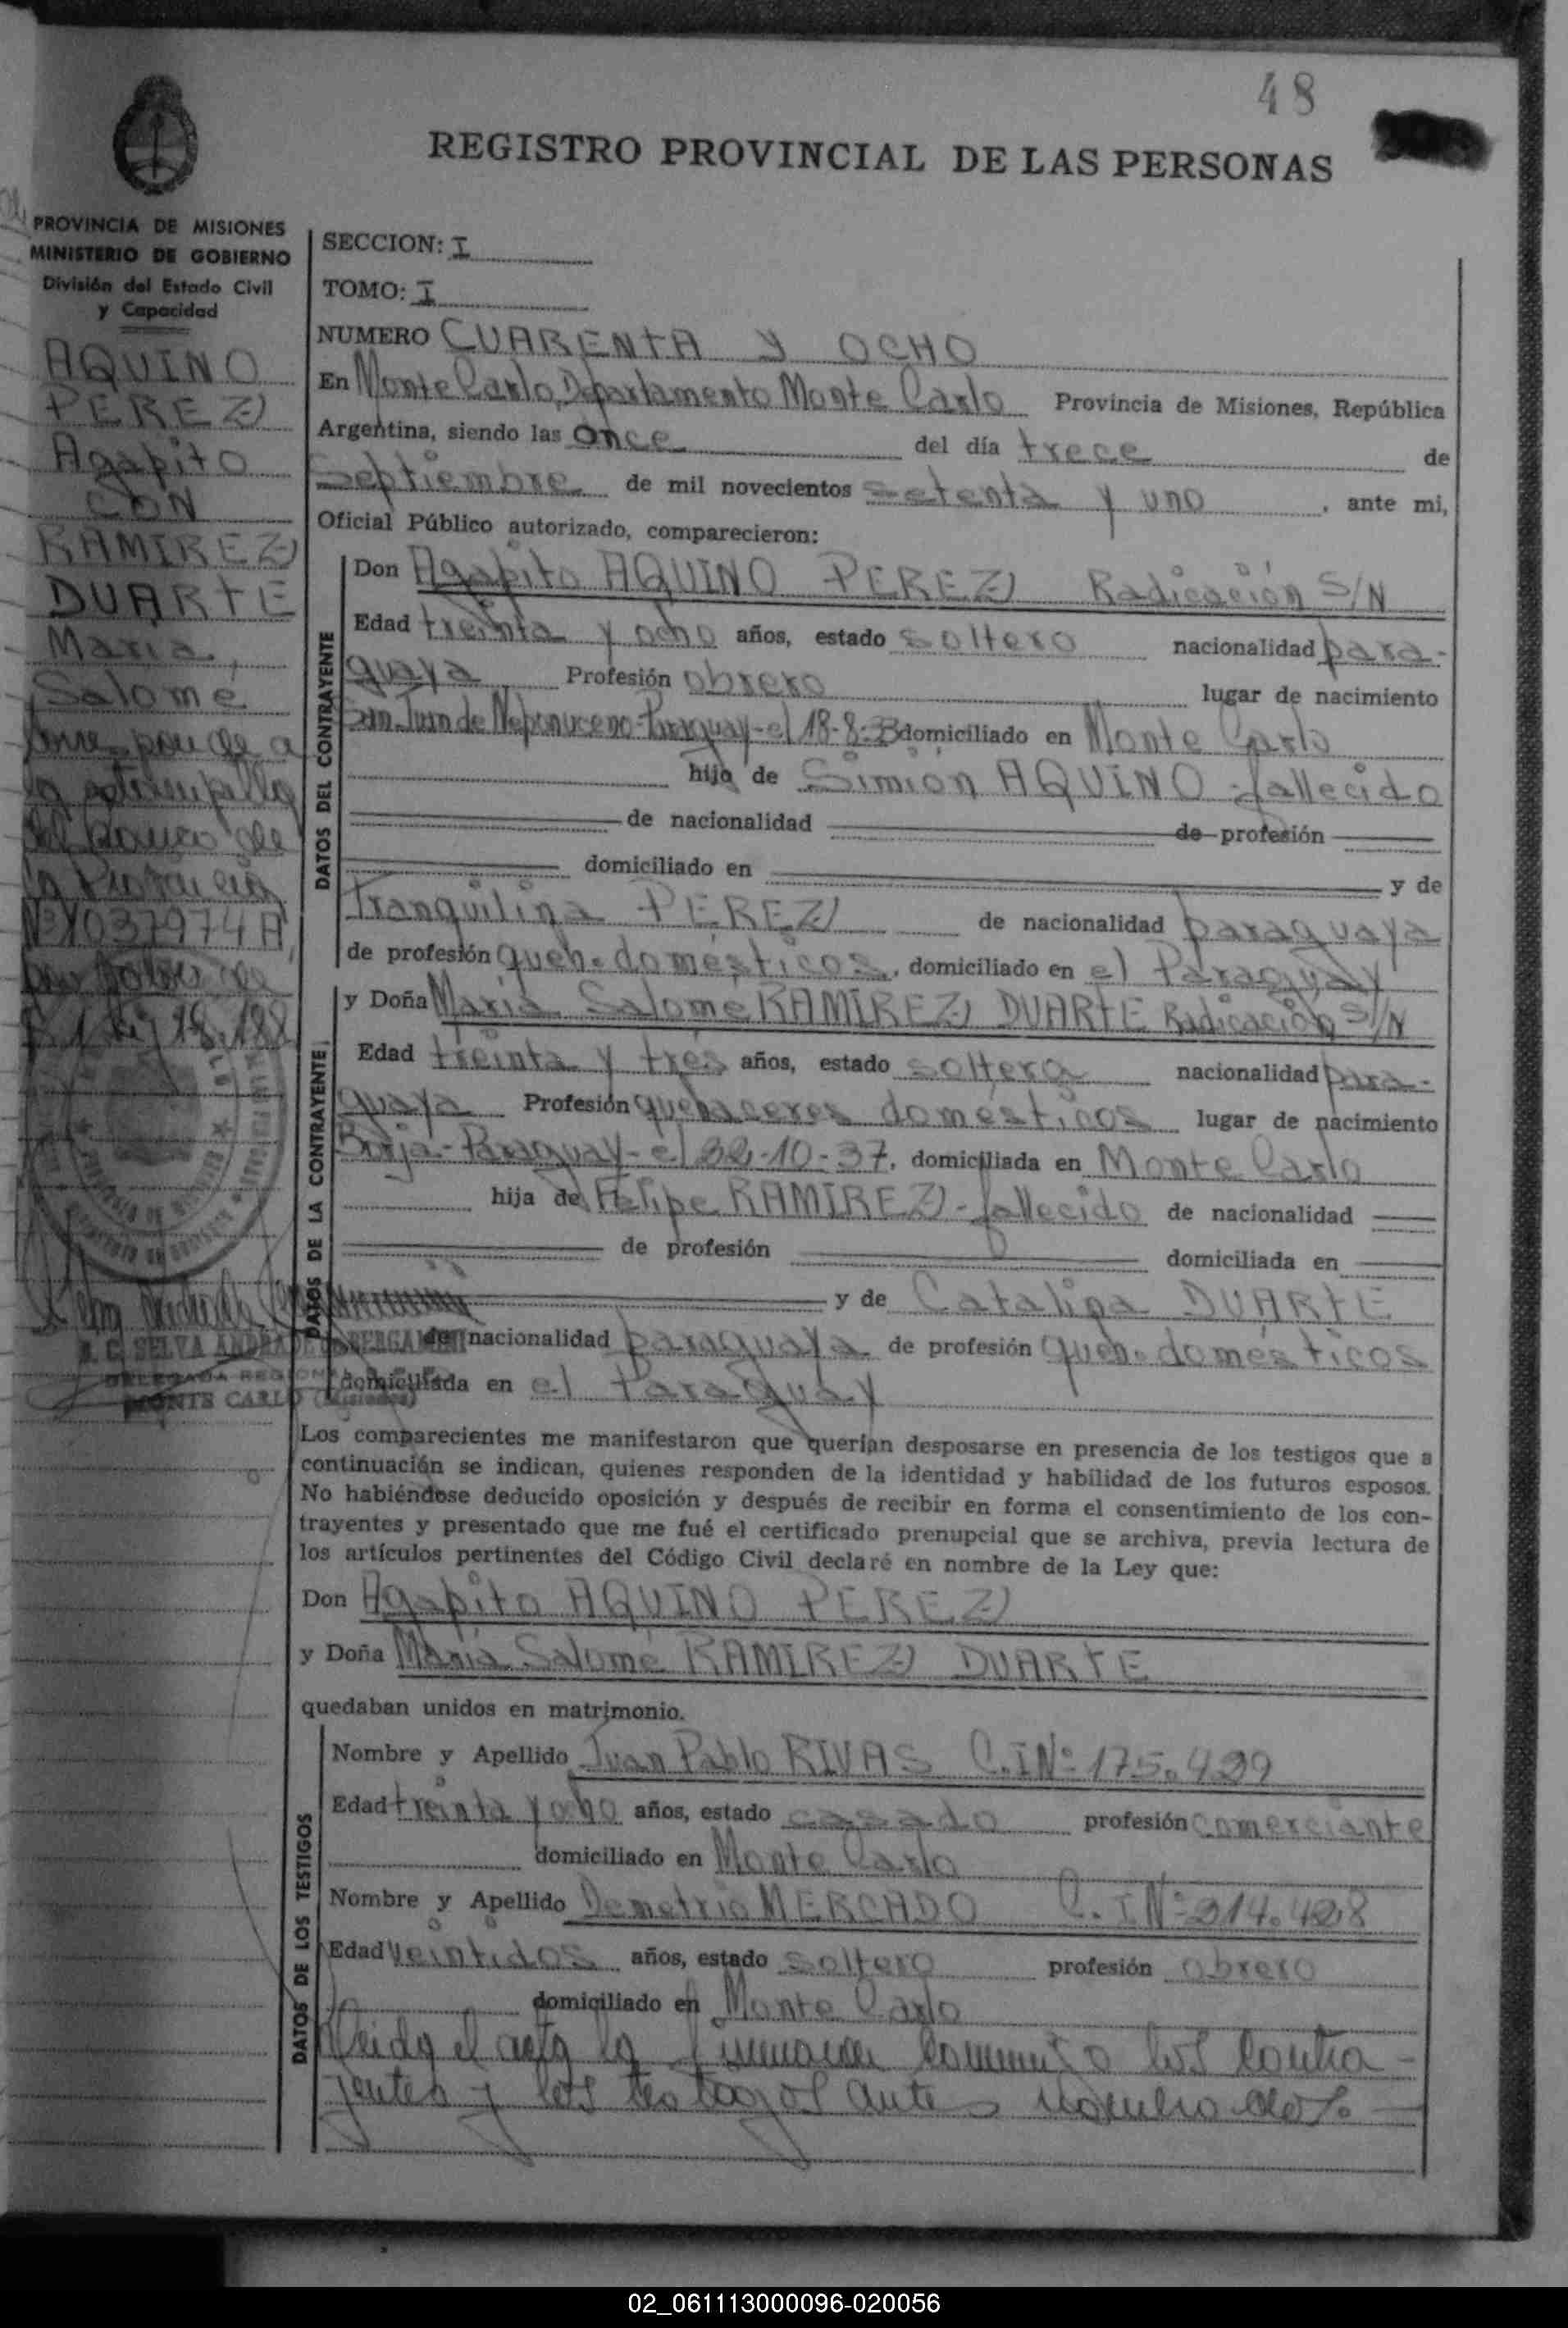 48
REGISTRO PROVINCIAL DE LAS PERSONAS
PROVINCIA DE MISIONES
MINISTERIO DE GOBIERNO
División del Estado Civil
y Capacidad
AQUINO
PEREZ
Agapito
CON
RAMIREZ
DUARTE
María
Salomé
Corresponde a
la estampilla
del Banco de
la Provincia
Nº 1037974A
por valor de
SECCION: I
TOMO: I
NUMERO CUARENTA y OCHO
En Monte Carlo, Departamento Monte Carlo Provincia de Misiones, República
Argentina, siendo las once del día trece de
Septiembre de mil novecientos setenta y uno, ante mi,
Oficial Público autorizado, comparecieron:
DATOS DEL CONTRAYENTE
Don Agapito AQUINO PEREZ Radicación S/N
Edad treinta y ocho años, estado soltero nacionalidad para-
guaya Profesión obrero lugar de nacimiento
San Juan de Nepomuceno-Paraguay-el 18-8-33 domiciliado en Monte Carlo
hijo de Simión AQUINO-fallecido
de nacionalidad de profesión
domiciliado en y de
Tranquilina PEREZ de nacionalidad paraguaya
de profesión queh. domésticos, domiciliado en el Paraguay
DATOS DE LA CONTRAYENTE
y Doña María Salomé RAMIREZ DUARTE Radicación S/N
Edad treinta y tres años, estado soltera nacionalidad para-
guaya Profesión quehaceres domésticos lugar de nacimiento
Borja-Paraguay-el 22-10-37, domiciliada en Monte Carlo
hija de Felipe RAMIREZ-fallecido de nacionalidad
de profesión domiciliada en
y de Catalina DUARTE
de nacionalidad paraguaya de profesión queh. domésticos
domiciliada en el Paraguay
S. C. SELVA ANDRADE BERGAMINI
DELEGADA REGIONAL
MONTE CARLO (Misiones)
Los comparecientes me manifestaron que querían desposarse en presencia de los testigos que a
continuación se indican, quienes responden de la identidad y habilidad de los futuros esposos.
No habiéndose deducido oposición y después de recibir en forma el consentimiento de los con-
trayentes y presentado que me fué el certificado prenupcial que se archiva, previa lectura de
los artículos pertinentes del Código Civil declaré en nombre de la Ley que:
Don Agapito AQUINO PEREZ
y Doña María Salomé RAMIREZ DUARTE
quedaban unidos en matrimonio.
DATOS DE LOS TESTIGOS
Nombre y Apellido Juan Pablo RIVAS C.I Nº 175.429
Edad treinta y ocho años, estado casado profesión comerciante
domiciliado en Monte Carlo
Nombre y Apellido Demetrio MERCADO C.I Nº 214.428
Edad veintidos años, estado soltero profesión obrero
domiciliado en Monte Carlo
Leida el acta la firmaron conmigo los contra-
yentes y los testigos antes nombrados.
02_061113000096-020056